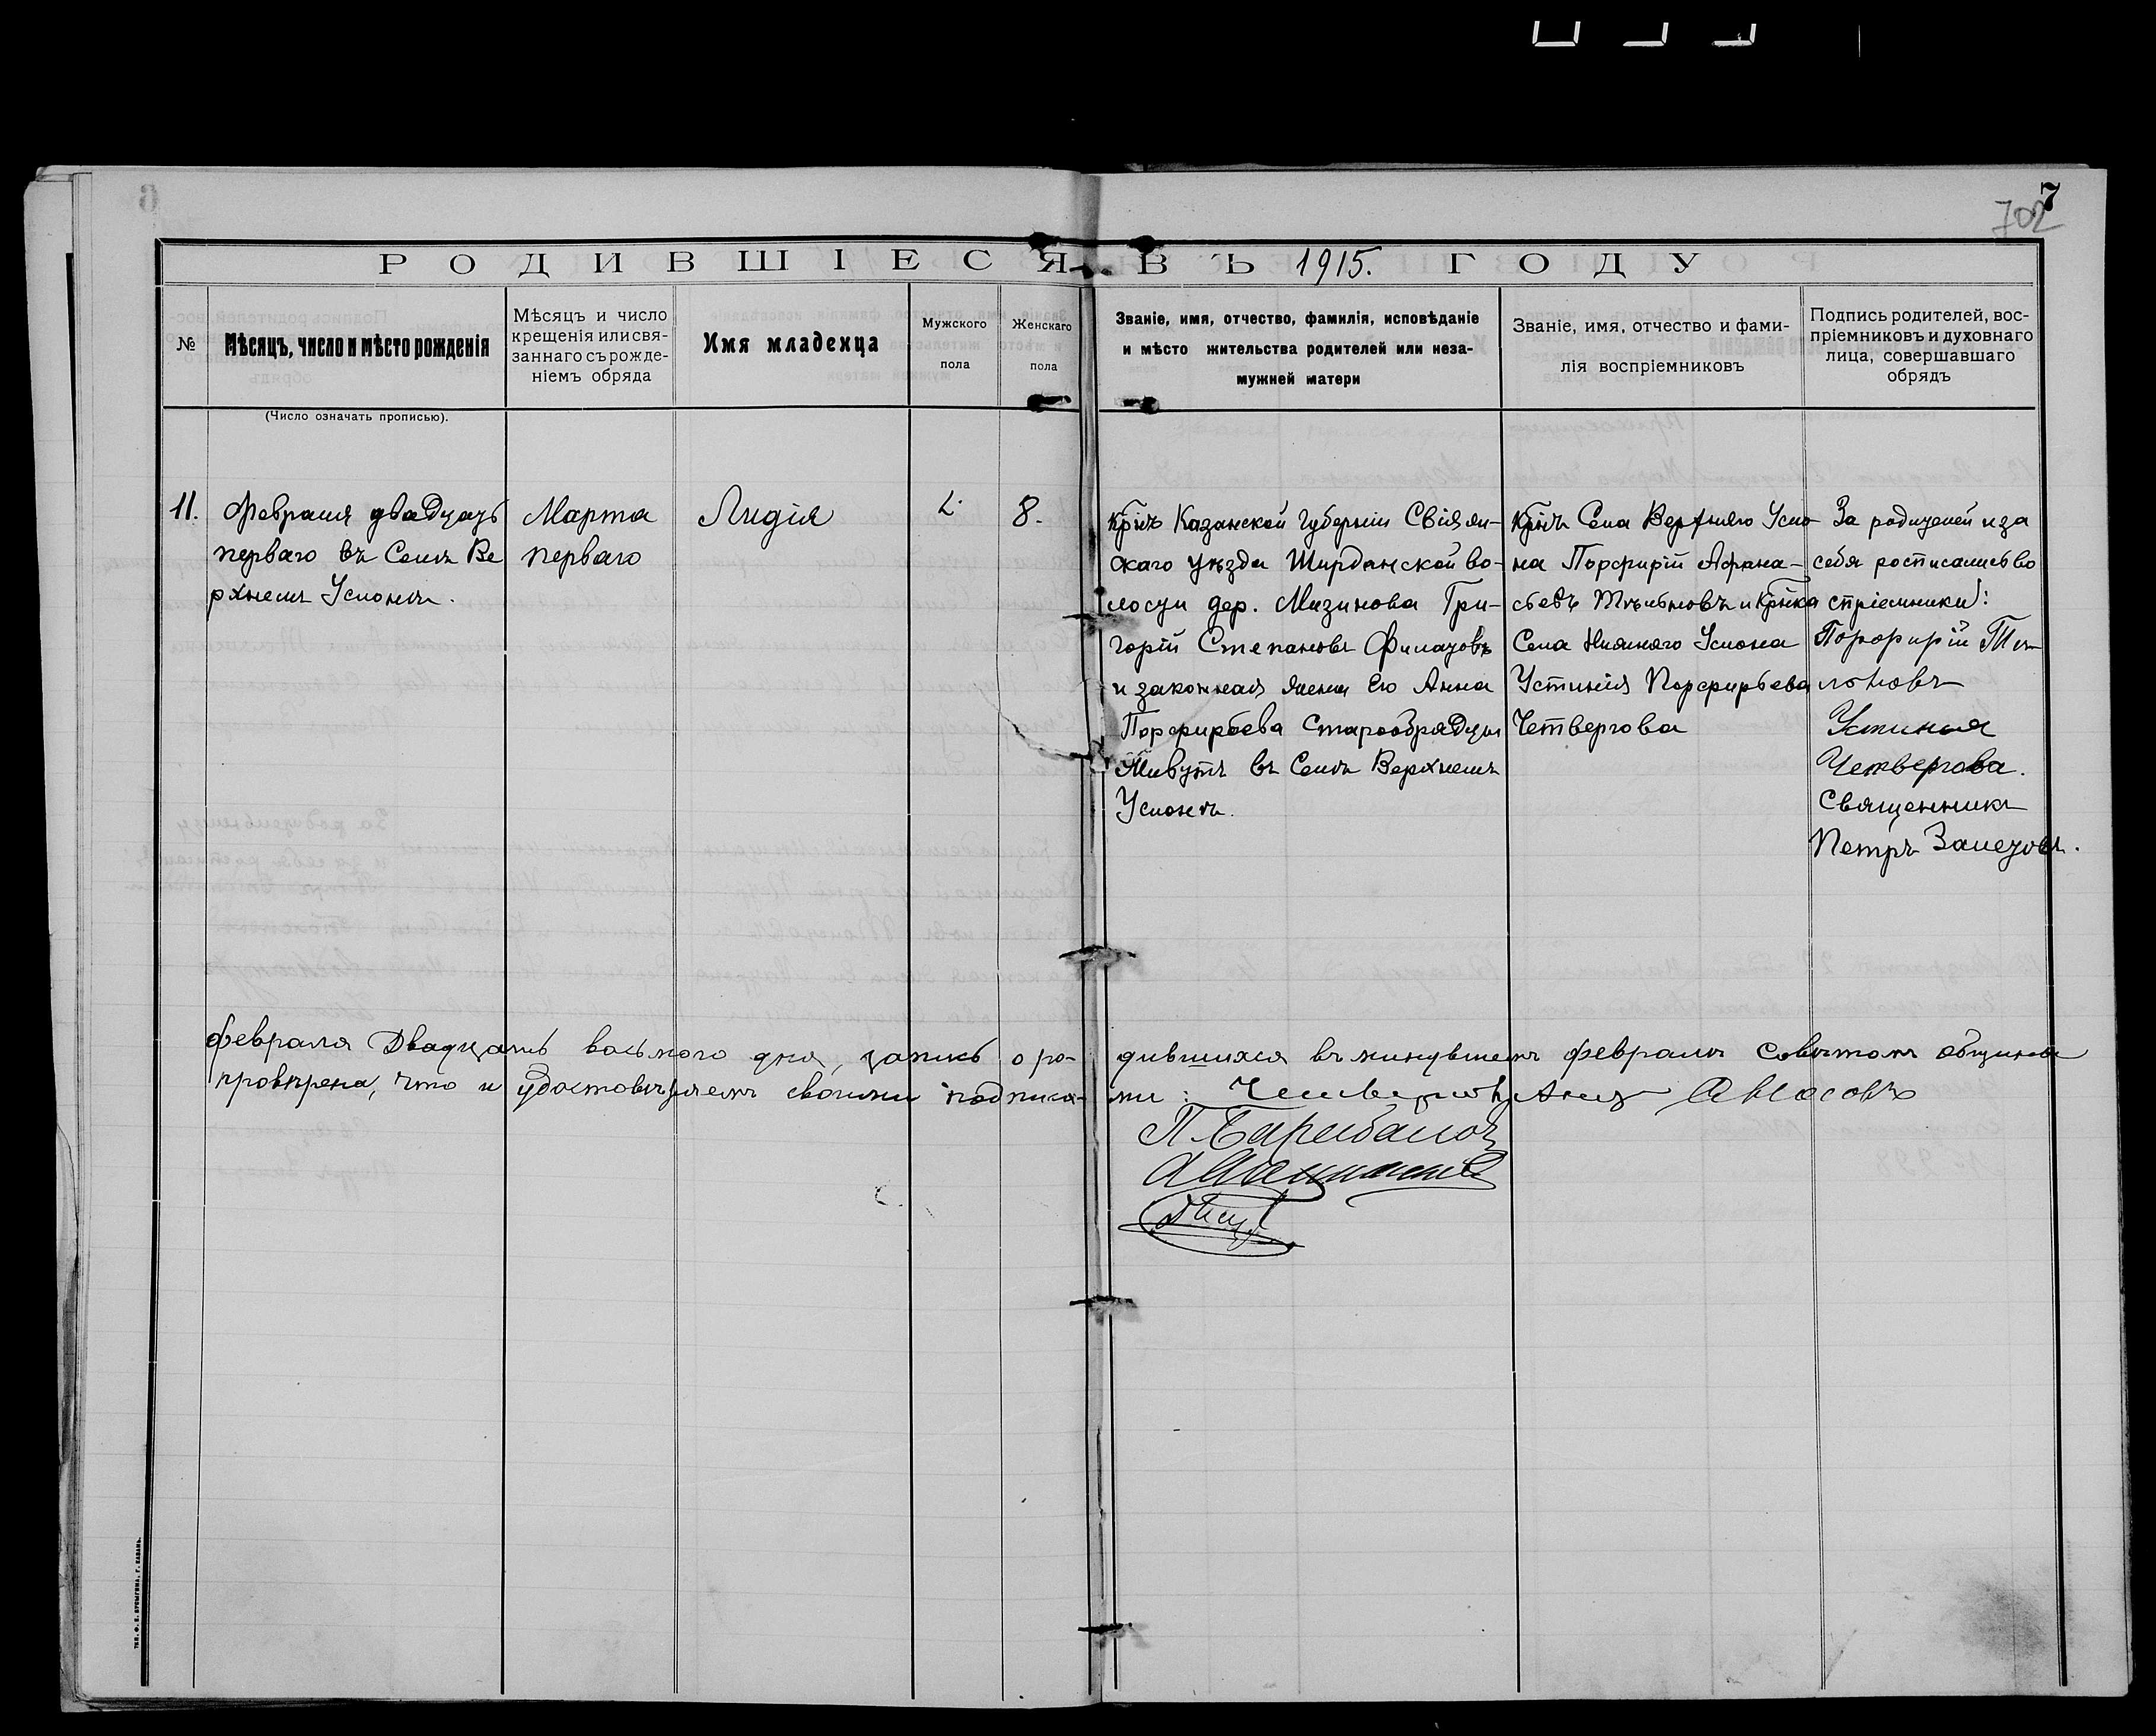 7
702
РОДИВШІЕСЯ ВЪ 1915. ГОДУ
№
Мѣсяцъ, число и мѣсто рожденія
(Число означать прописью).
Мѣсяцъ и число
крещенія или свя-
заннаго съ рожде-
ніемъ обряда
Имя младенца
Мужского
пола
Женскаго
пола
Званіе, имя, отчество, фамилія, исповѣданіе
и мѣсто жительства родителей или неза-
мужней матери
Званіе, имя, отчество и фами-
лія воспріемниковъ
Подпись родителей, вос-
пріемниковъ и духовнаго
лица, совершавшаго
обрядъ
11.
Февраля двадцать
перваго въ Селѣ Ве
рхнемъ Услонѣ.
Марта
перваго
Лидія
8.
Крнъ Казанской Губерніи Свіяж-
скаго уѣзда Ширданской во-
лости дер. Мизинова Гри-
горій Степановъ Филатовъ
и законная жена его Анна
Порфирьева Старообрядцы
Живутъ въ Селѣ Верхнемъ
Услонѣ.
Крнъ Села Верхняго Усло
на Порфирій Афана-
сьевъ и Крнка
Села Нижняго Услона
Устинія Порфирьева
Четвергова
За родителей и за
себя росписались во
спріемники:
Порфирій
Устинья
Четвергова.
Священникъ
Петръ Залетовъ.
Февраля Двадцать восьмого дня, запись о ро- дившихся въ минувшемъ февралѣ Совѣтомъ общины
провѣрена, что и удостовѣряемъ своими подпися- ми: